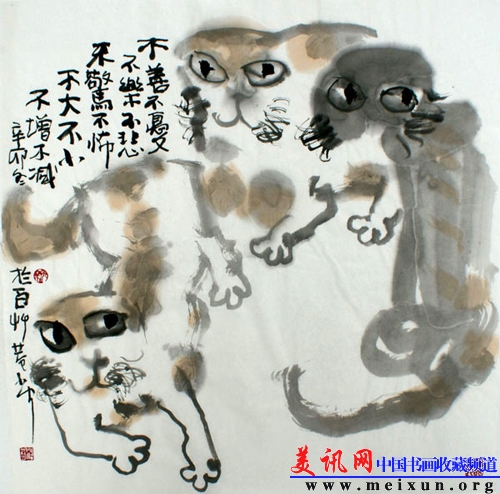 不善不憂
不樂不悲
不驚不怖
不大不小
不增不减
辛卯冬
於百艸
美讯网 中国书画收藏频道
www.meixun.org